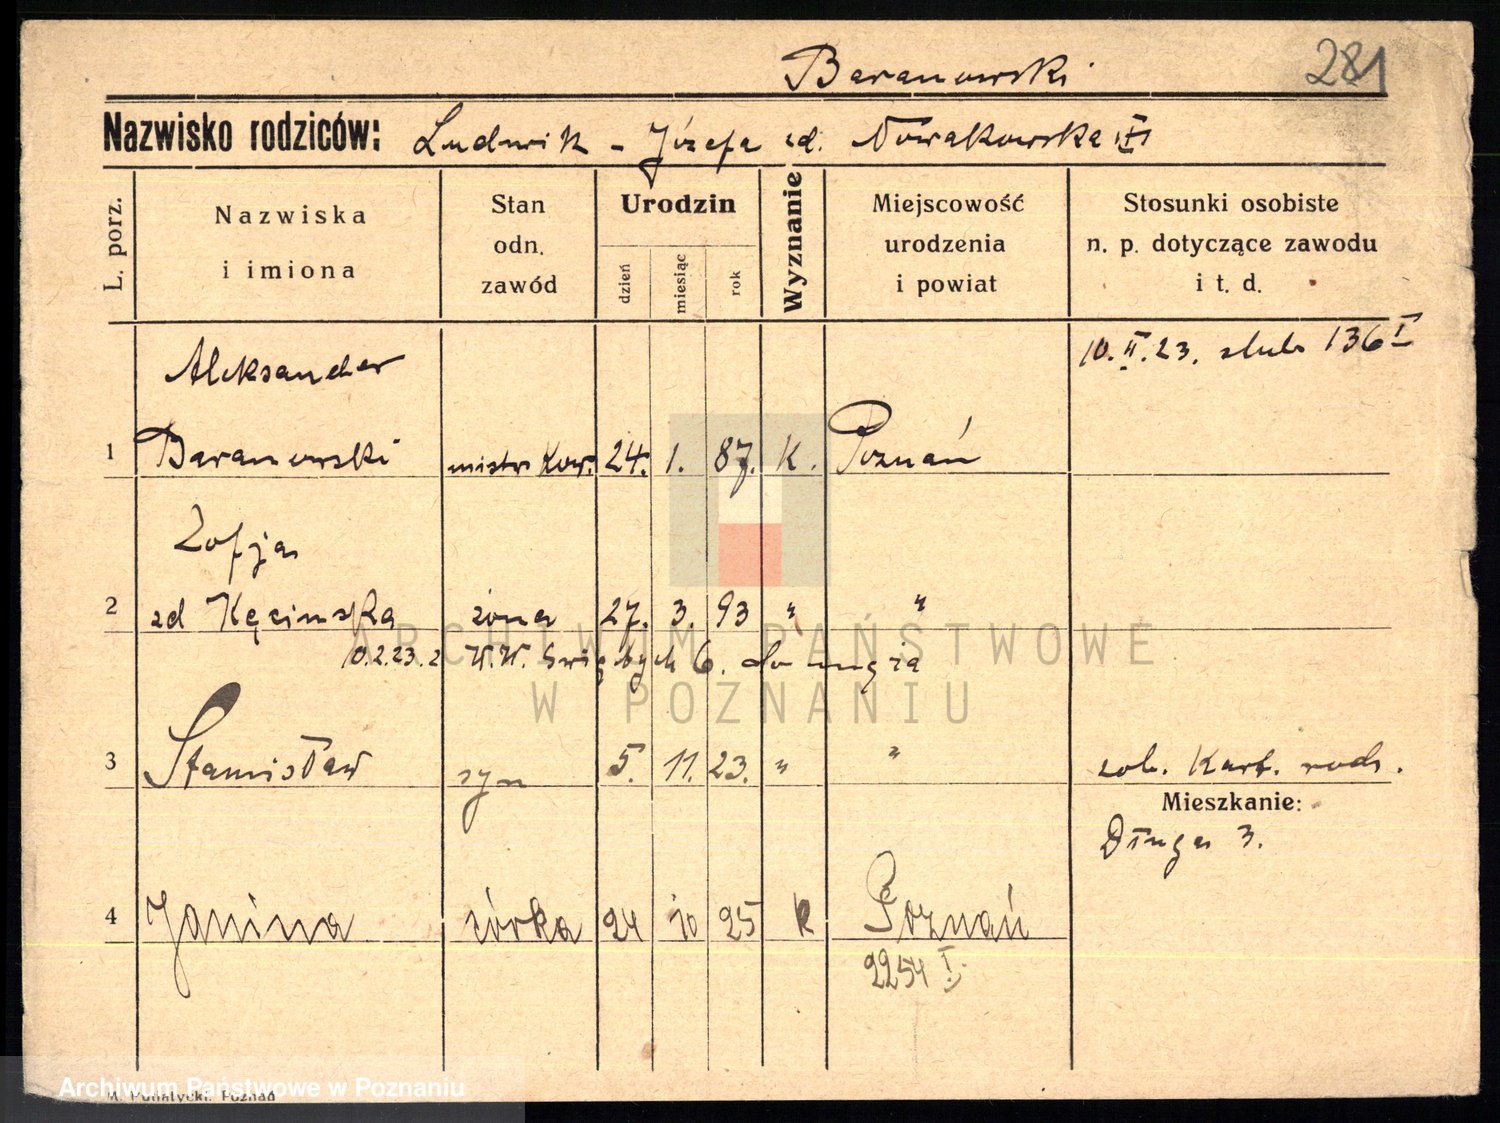 281
Baranowski
Nazwisko rodziców: Ludwik - Józefa zd. Nowakowska VI
L. porz.
Nazwiska
i imiona
Stan
odn.
zawód
Urodzin
dzień
miesiąc
rok
Wyznanie
Miejscowość
urodzenia
i powiat
Stosunki osobiste
n. p. dotyczące zawodu
i t. d.
10. II. 23. slub 136 I
Aleksander
1 Baranowski mistrz kow. 24. 1. 87. K. Poznań
Zofja
2 zd Kęcinska żona 27. 3. 93 " "
10.2.23. z W.W. 6. do męża
3 Stanisław syn 5. 11. 23. " " zob. Kart. rodz.
Mieszkanie:
Długa 3.
4 Janina córka 24 10 25 k Poznań
2254 I.
ARCHIWUM PAŃSTWOWE
W POZNANIU
Archiwum Państwowe w Poznaniu
M. Pohatycki. Poznań